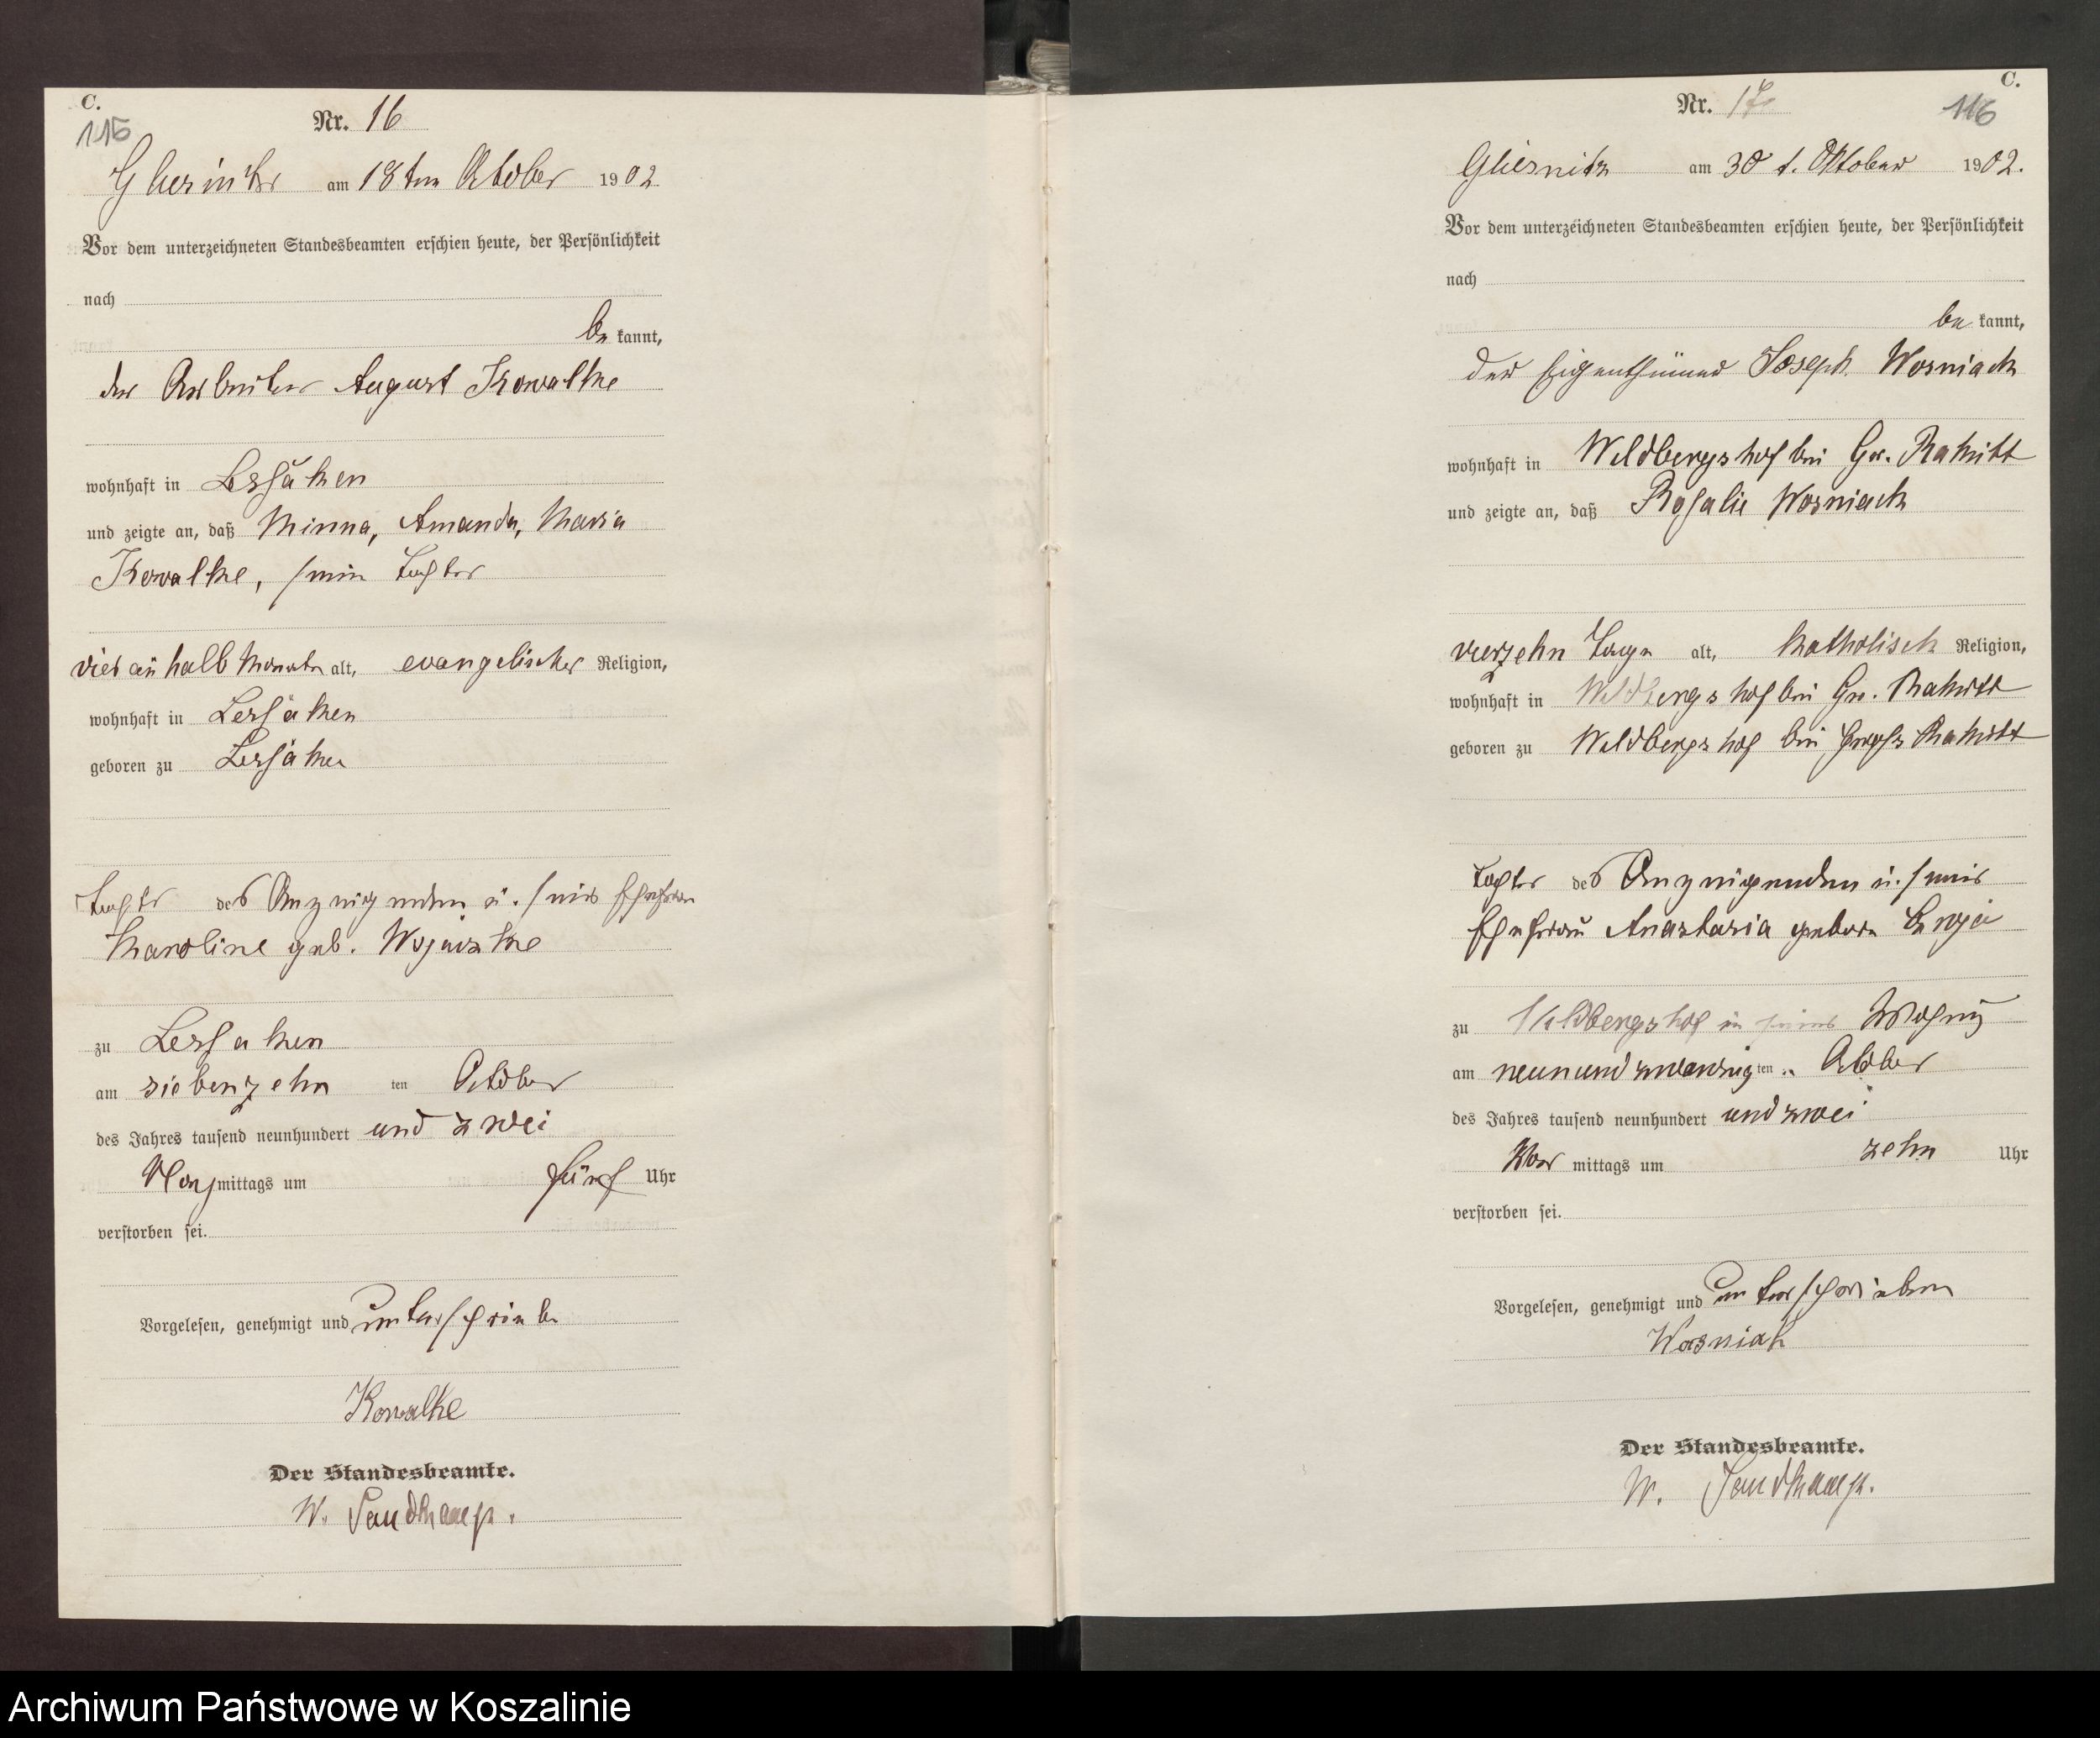 C.
115
Nr. 16
Gliesnitz am 18ten Oktober 1902
Vor dem unterzeichneten Standesbeamten erschien heute, der Persönlichkeit
nach
be kannt,
der Arbeiter August Kowalke
wohnhaft in Lessaken
und zeigte an, daß Minna, Amanda, Maria
Kowalke, seine Tochter
halb Monate alt, evangelischer Religion,
wohnhaft in Lessaken
geboren zu Lessaken
Tochter des Anzeigenden u. seiner Ehefrau
Karoline geb.
zu Lessaken
am siebenzehn ten Oktober
des Jahres tausend neunhundert und zwei
Nachmittags um fünf Uhr
verstorben sei.
Vorgelesen, genehmigt und unterschrieben
Kowalke
Der Standesbeamte.
W. Sandkamp.
C.
116
Nr. 17
Gliesnitz am 30 t. Oktober 1902.
Vor dem unterzeichneten Standesbeamten erschien heute, der Persönlichkeit
nach
be kannt,
der Eigenthümer Joseph Wosniack
wohnhaft in Wildbergshof bei Gr. Rakitt
und zeigte an, daß Rosalie Wosniack
vierzehn Tage alt, katholisch Religion,
wohnhaft in Wildbergshof bei Gr. Rakitt
geboren zu Wildbergshof bei Gross Rakitt
Tochter des Anzeigenden u. seiner
Ehefrau Anastasia geborn
zu Wildbergshof in seiner Wohnung
am neunundzwanzig ten Oktober
des Jahres tausend neunhundert und zwei
Vor mittags um zehn Uhr
verstorben sei.
Vorgelesen, genehmigt und unterschrieben
Wosniak
Der Standesbeamte.
W. Sandkamp.
Archiwum Państwowe w Koszalinie